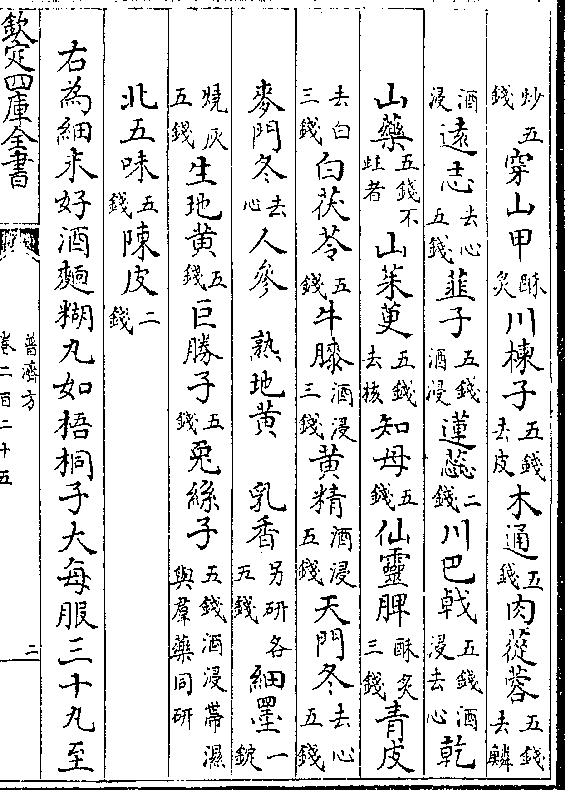 炒五錢穿山甲酥炙川楝子五錢去皮木通五錢肉蓯蓉五錢去麟
酒浸遠志去心五錢韮子五錢酒浸蓮蕊二錢川巴戟五錢酒浸去心乾
山藥五錢不蛀者山茱萸五錢去核知母五錢仙靈脾酥炙三錢青皮
去白三錢白茯苓五錢牛膝酒浸三錢黄精酒浸五錢天門冬去心五錢
麥門冬去心人參 熟地黄 乳香另研各五錢細墨一錠
燒灰五錢生地黄五錢巨勝子五錢兎絲子五錢酒浸帶濕與羣藥同研
北五味五錢陳皮二錢
右為細末好酒麵糊丸如梧桐子大每服三十丸至
欽定四庫全書
普濟方
卷二百二十五
二